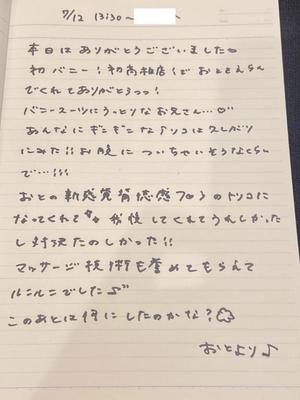 7/12 13:30〜
本日はありがとうございました♡
初バニー！初高相店！でおとをえらん
でくれてありがとうっっ！
バニースーツにうっとりなお兄さん…♡
あんなにギンギンな♪♪コは久しぶり
にみた!!お腹についちゃいそうなくらい
で…!!!
おとの新感覚背徳感フロ3のトリコに
なってくれて 我慢してくれてうれしかった
し対決たのしかった!!
マッサージ技術も誉めてもらえて
ルンルンでした♪
このあとは何にしたのかな？
おとより♪